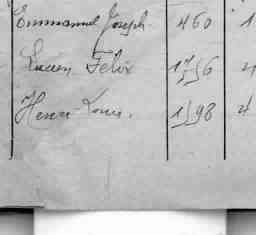 Emmanuel Joseph. 460 1
Lucien Félix 4
Henri Louis. 4